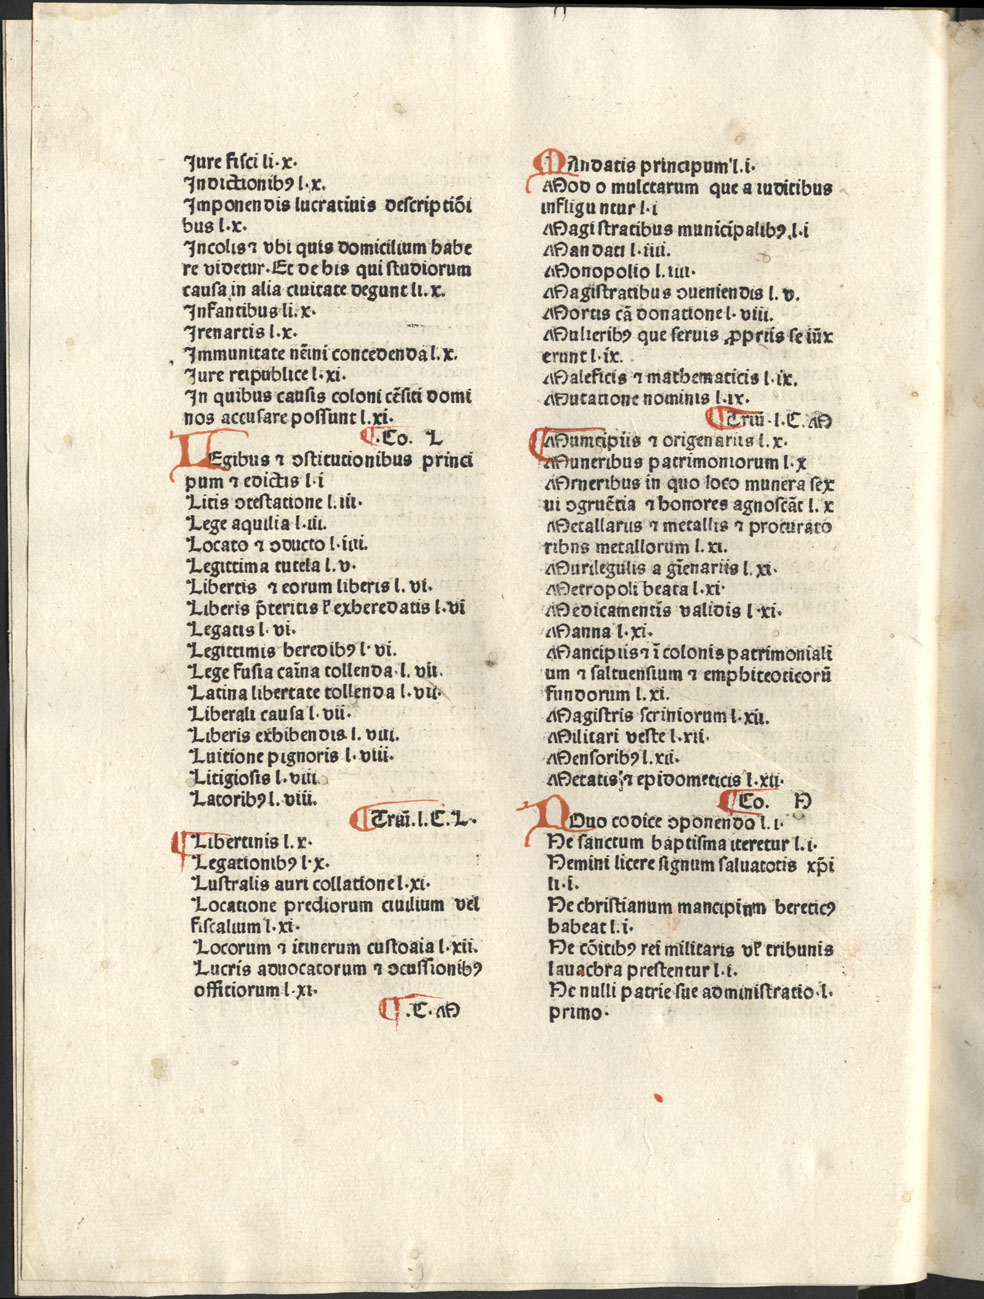 Jure fisci li·x·
Indictionibꝰ l·x.
Imponendis lucratiuis descriptiōi
bus l·x·
Incolis ⁊ vbi quis domicilium habe
re videtur·Et de his qui studiorum
causa in alia ciuitate degunt li·x.
Infantibus li·x·
Irenartis l·x·
Immunitate nēini concedenda l.x.
Jure reipublice l·xi·
In quibus causis coloni cēsiti domi
nos accusare possunt l.xi·
¶·Co. L
LEgibus ⁊ ↄstitutionibus princi
pum ⁊ edictis l·i
Litis ↄtestatione l·iii·
Lege aquilia l·iii.
Locato ⁊ ↄducto l·iiii.
Legittima tutela l.v·
Libertis ⁊ eorum liberis l. vi·
Liberis p̄teritis ꝉ exheredatis l·vi
Legatis l· vi·
Legittimis heredibꝰ l· vi.
Lege fusia caīna tollenda· l. vii.
Latina libertate tollenda l·vii·
Liberali causa l·vii·
Liberis exhibendis l. viii.
Luitione pignoris l·viii·
Litigiosis l·viii
Latoribꝰ l. viii.
¶Triū.l.C.L·
¶Libertinis l.x·
Legationibꝰ l·x·
Lustralis auri collatione l·xi·
Locatione prediorum ciuilium vel
fiscalium l·xi·
Locorum ⁊ itinerum custoaia l·xii.
Lucris aduocatorum ⁊ ↄcussionibꝰ
offitiorum l·xi·
¶.C·M
MAndatis principum l.i·
Mod o mulctarum que a iuditibus
infligu ntur l·i
Magistratibus municipalibꝰ.l·i
Mandati l·iiii.
Monopolio l.iiii·
Magistratibus ↄueniendis l. v.
Mortis cā donatione l· viii.
Mulieribꝰ que seruis ꝓpriis se iūx
erunt l·ix.
Maleficis ⁊ mathematicis l·ix.
Mutatione nominis l.ix·
¶Triū·l.C.M
¶Municipiis ⁊ origenariis l.x·
Muneribus patrimoniorum l·x
Mrneribus in quo loco munera sex
ui ↄgruētia ⁊ honores agnoscāt l. x
Metallariis ⁊ metallis ⁊ procurato
ribns metallorum l. xi.
Murilegulis a gīenariis l. xi·
Metropoli beata l·xi·
Medicamentis validis l·xi.
Manna l·xi·
Mancipiis ⁊ ī colonis patrimoniali
um ⁊ saltuensium ⁊ emphiteoticorū
fundorum l.xi.
Magistris scriniorum l·xii.
Militari veste l.xii·
Mensoribꝰ l.xii·
Metatis ⁊ epidometicis l.xii·
¶Co. N
NOuo codice ↄponendo l.i·
Ne sanctum baptisma iteretur l.i·
Nemini licere signum saluatotis xp̄i
li·i.
Ne christianum mancipinm hereticꝰ
habeat l.i·
Ne cōitibꝰ rei militaris vꝉ tribunis
lauacbra prestentur l·i.
Ne nulli patrie sue administratio·l·
primo·